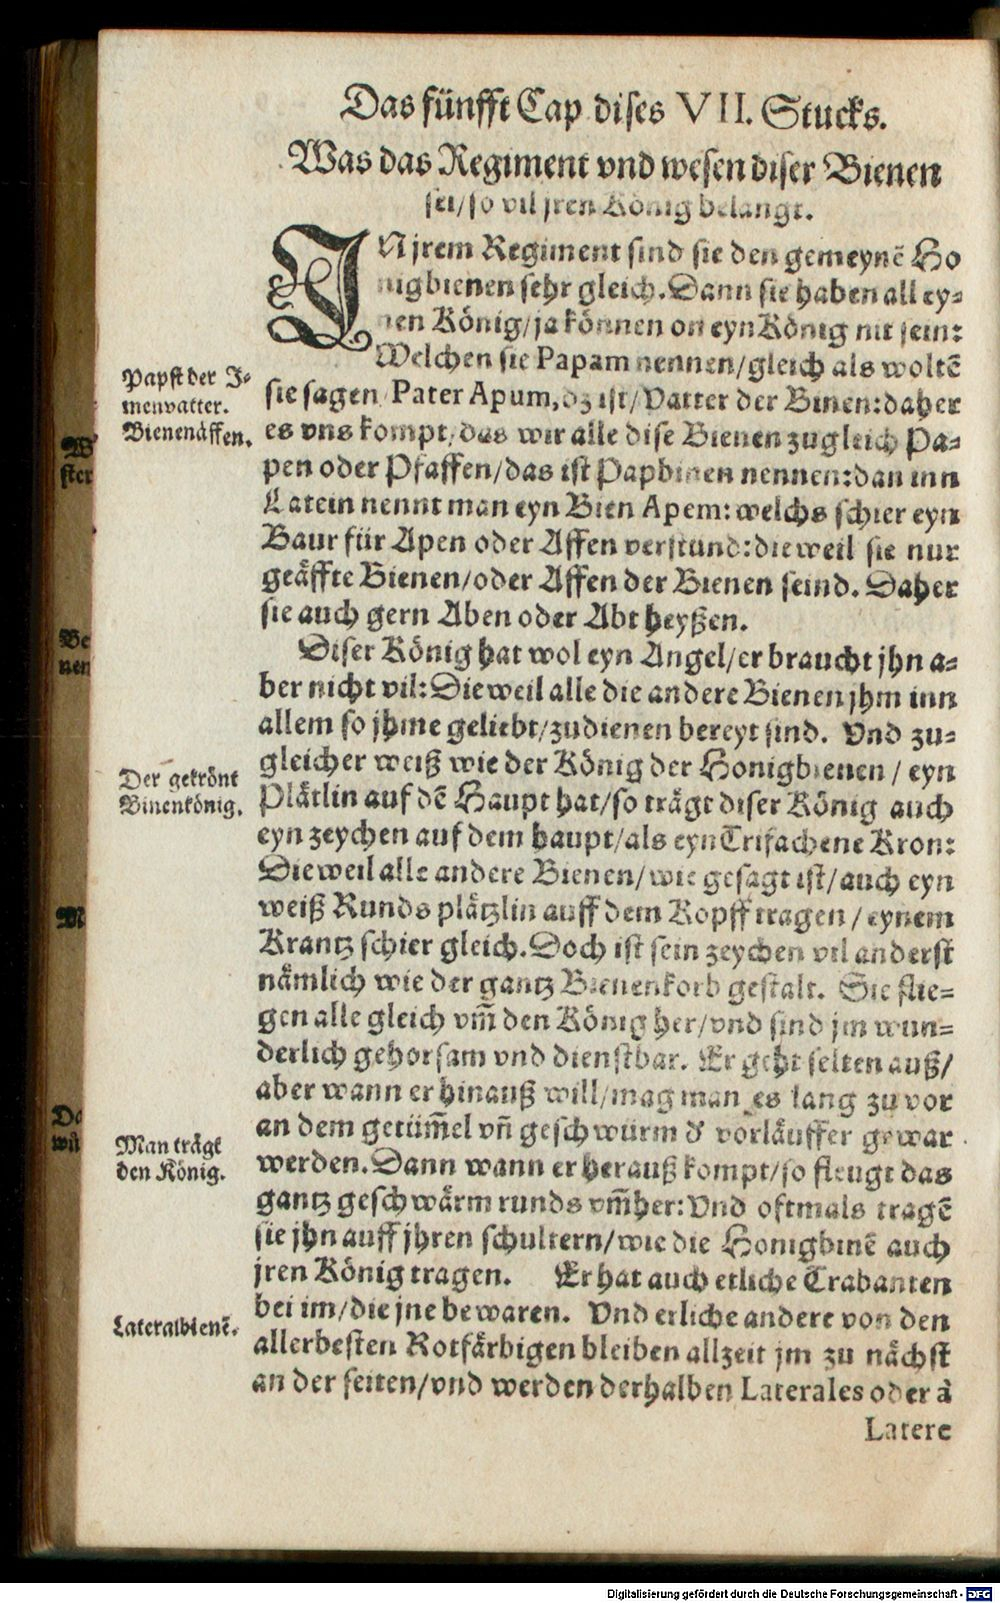 Das fünfft Cap dises VII. Stucks.
Was das Regiment vnd wesen diser Bienen
sei/so vil jren König belangt.
IN jrem Regiment sind sie den gemeynē Ho
nigbienen sehr gleich. Dann sie haben all ey-
nen König/ja können on eyn König nit sein:
Welchen sie Papam nennen/gleich als woltē
sie sagen Pater Apum, dz ist/Vatter der Binen: daher
es vns kompt/das wir alle dise Bienen zugleich Pa-
pen oder Pfaffen/das ist Papbinen nennen: dan inn
Latein nennt man eyn Bien Apem: welchs schier eyn
Baur für Apen oder Affen verstund: dieweil sie nur
geäffte Bienen/oder Affen der Bienen seind. Daher
sie auch gern Aben oder Abt heyßen.
Diser König hat wol eyn Angel/er braucht jhn a-
ber nicht vil: Dieweil alle die andere Bienen jhm inn
allem so jhme geliebt/zudienen bereyt sind. Vnd zu-
gleicher weiß wie der König der Honigbienen / eyn
Plätlin auf dē Haupt hat/so trägt diser König auch
eyn zeychen auf dem haupt/als eyn Trifachene Kron:
Dieweil alle andere Bienen/wie gesagt ist/auch eyn
weiß Runds plätzlin auff dem Kopff tragen / eynem
Krantz schier gleich. Doch ist sein zeychen vil anderst
nämlich wie der gantz Bienenkorb gestalt. Sie flie-
gen alle gleich vm̃ den König her/vnd sind jm wun-
derlich gehorsam vnd dienstbar. Er geht selten auß/
aber wann er hinauß will/mag man es lang zu vor
an dem getüm̃el vn̄ geschwürm d' vorläuffer gewar
werden. Dann wann er herauß kompt/so fleugt das
gantz geschwärm runds vm̃her: Vnd oftmals tragē
sie jhn auff jhren schultern/wie die Honigbinē auch
jren König tragen. Er hat auch etliche Trabanten
bei im/die jne bewaren. Vnd etliche andere von den
allerbesten Rotfärbigen bleiben allzeit jm zu nächst
an der seiten/vnd werden derhalben Laterales oder à
Latere
Papst der I-
menvatter.
Bienenäffen.
Der gekrönt
Binenkönig.
Man trägt
den König.
Lateralbienē.
W
ster
Be
nen
M
Da
wü
Digitalisierung gefördert durch die Deutsche Forschungsgemeinschaft - DFG